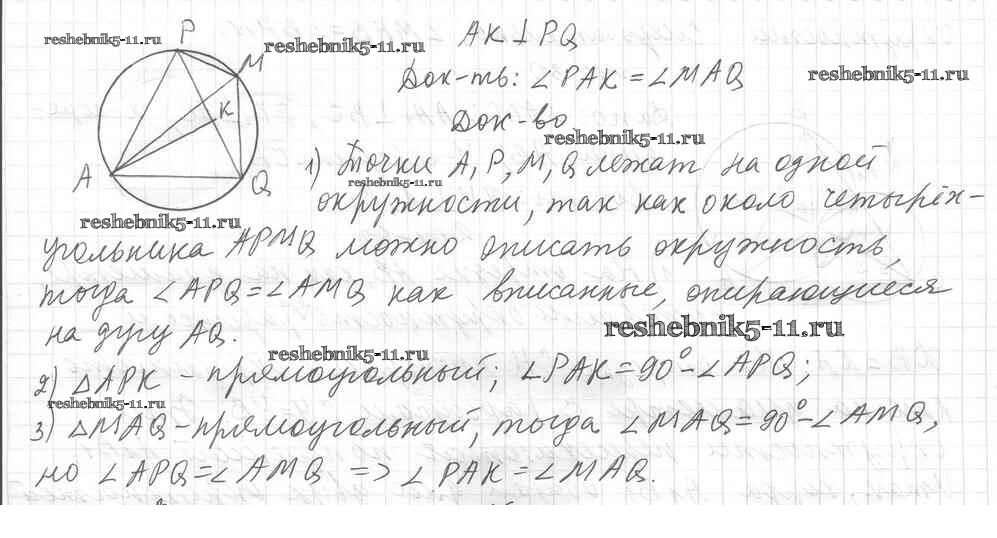 P
reshebnik5-11.ru
reshebnik5-11.ru
AK⊥PQ
M
Док-ть: ∠PAK = ∠MAQ
reshebnik5-11.ru
K
Док-во
reshebnik5-11.ru
A
Q
1) Точки A, P, M, Q лежат на одной
reshebnik5-11.ru
reshebnik5-11.ru
окружности, так как около четырёх-
угольника APMQ можно описать окружность,
тогда ∠APQ=∠AMQ как вписанные, опирающиеся
на дугу AQ.
reshebnik5-11.ru
reshebnik5-11.ru
2) △APK - прямоугольный; ∠PAK=90°-∠APQ;
reshebnik5-11.ru
3) △MAQ-прямоугольный, тогда ∠MAQ=90°-∠AMQ,
но ∠APQ=∠AMQ => ∠PAK=∠MAQ.